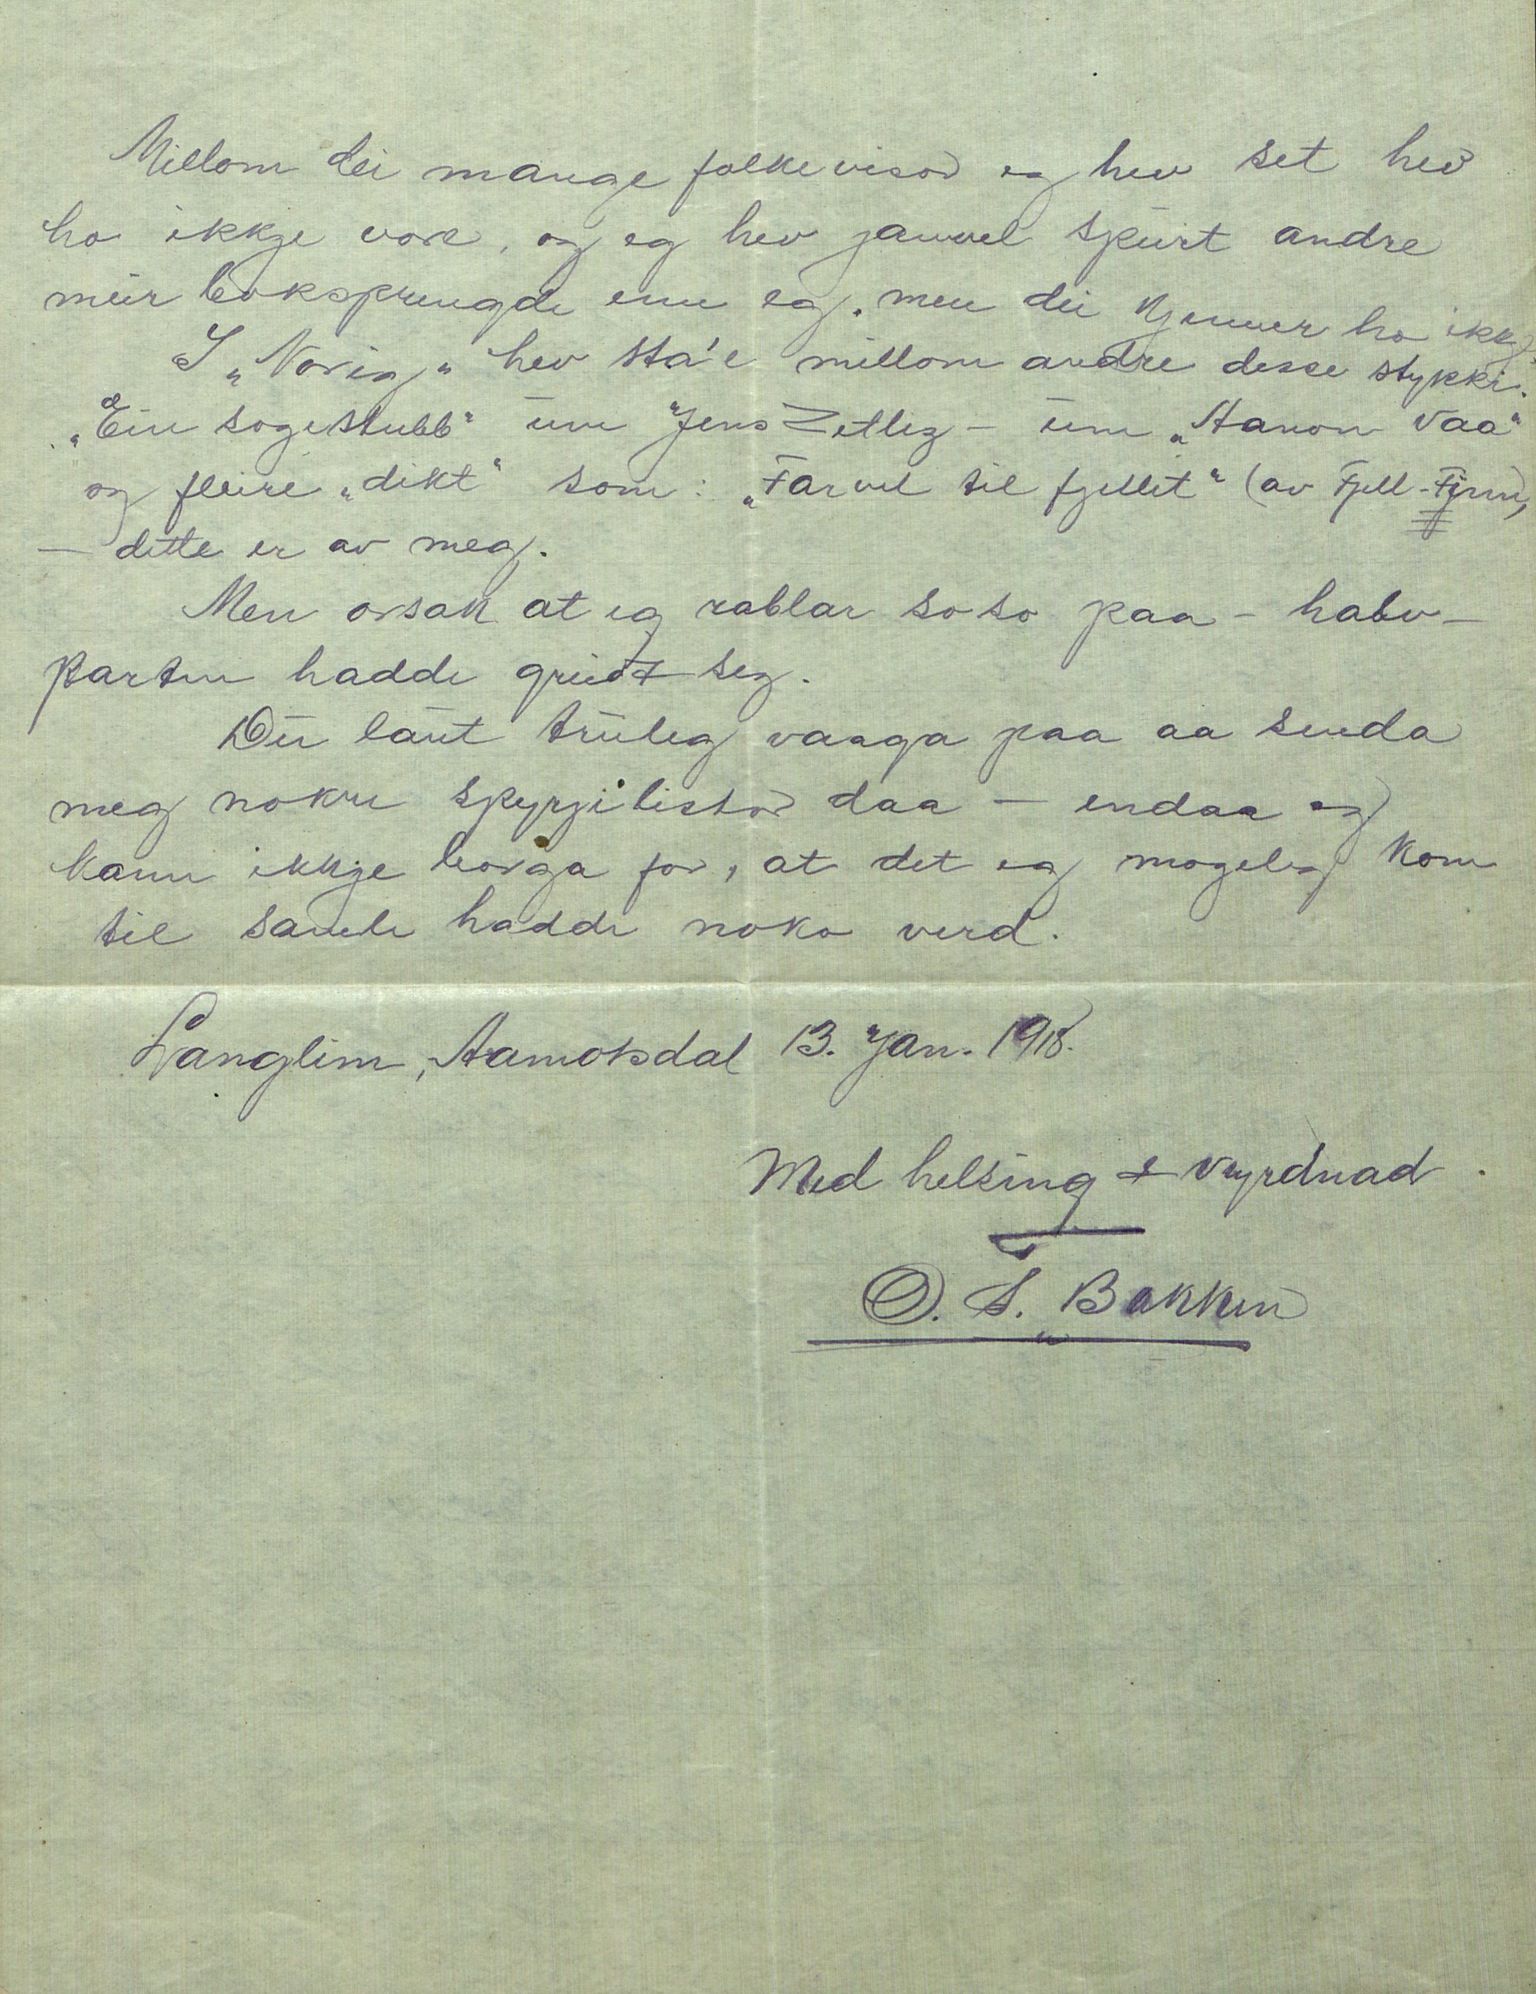 Millom dei mange folkevisor eg hev set hev
ho ikkje vore, og eg hev jamvel spurt andre
meir boksprengde enn eg, men dei kjenner ho ikkje.
I "Noreg" hev sta'e millom andre desse stykki:
"Ein sogestubb" um "Jens Zetliz – um "Hanon Vaa"
og fleire "dikt" som: "Farvel til fjellet" (av Fjell-Finn,
– dette er av meg.
Men orsak at eg rablar so so paa – halv-
parten hadde greidt seg.
Du lært truleg vaaga paa aa senda
meg nokre spyrjilistor daa – endaa eg
kann ikkje borga for, at det eg mogeleg kom
til samle hadde noko verd.
Langlim, Aamotsdal 13. Jan. 1918.
Med helsing & vyrdnad.
O. S. Bakken